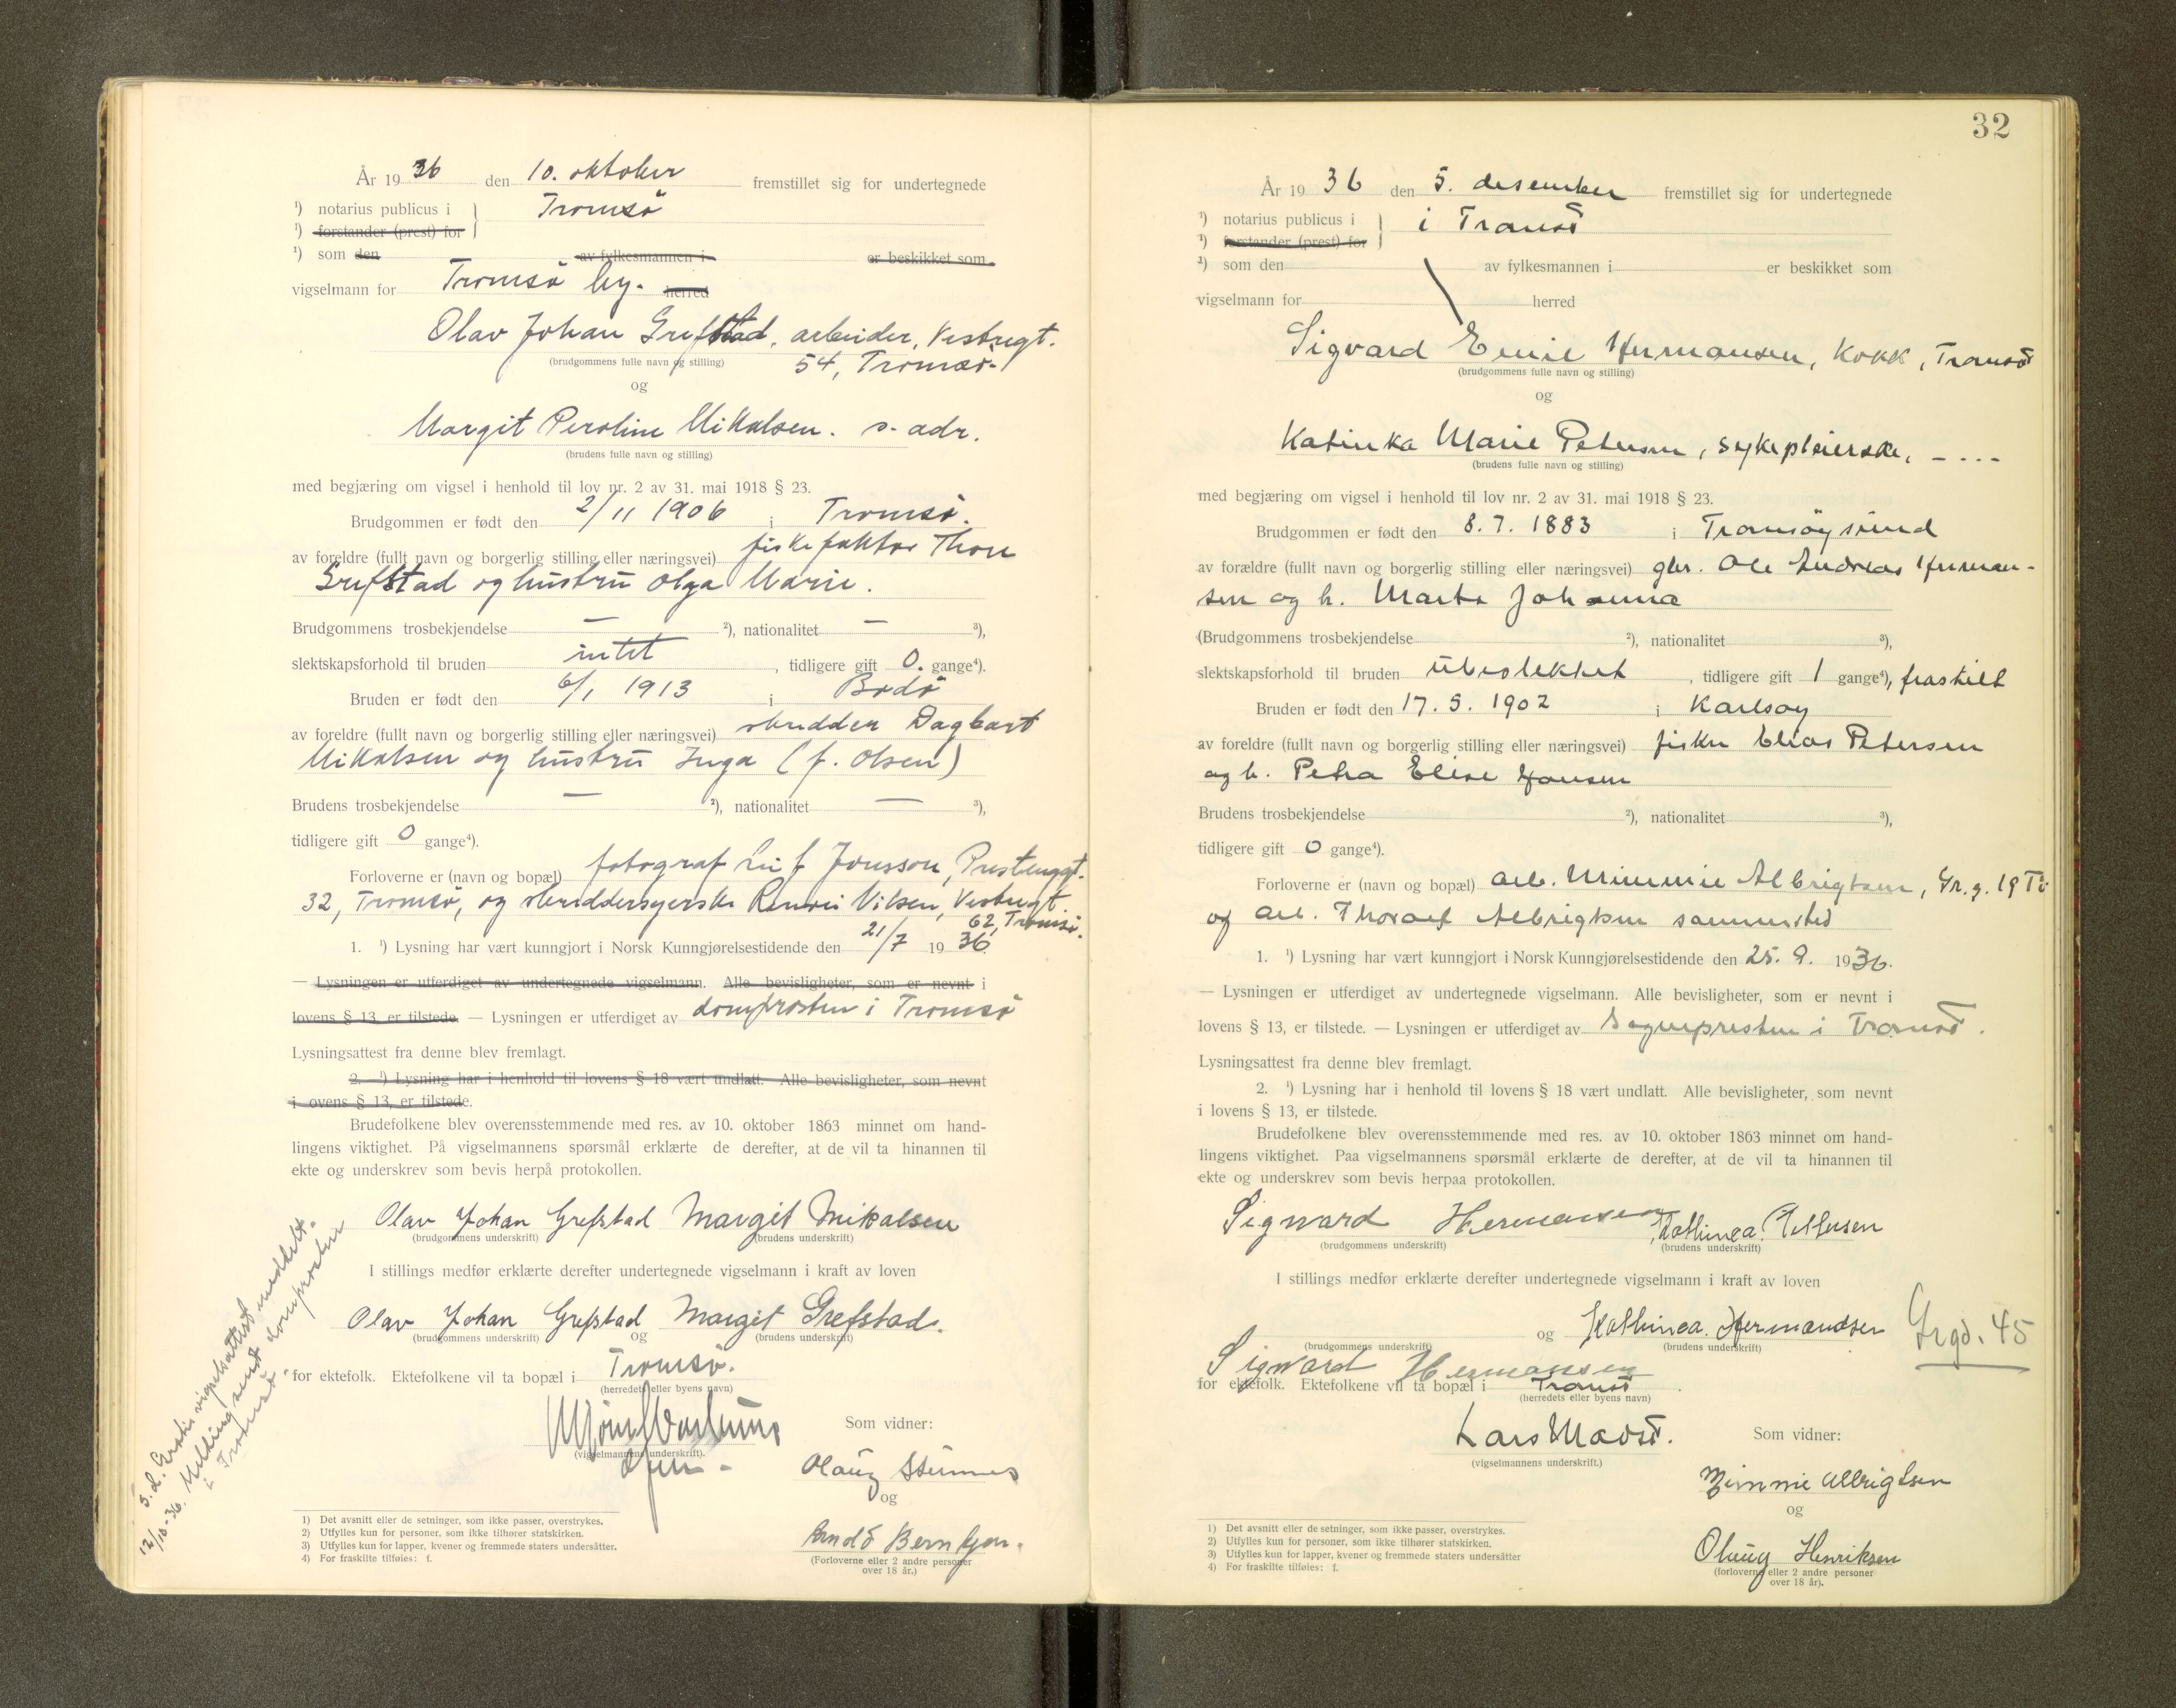 År 1936 den 10. oktober fremstillet sig for undertegnede
¹) notarius publicus i Tromsø
¹) forstander (prest) for
¹) som den av fylkesmannen i er beskikket som
vigselmann for Tromsø by. herred
Olav Johan Grefstad, arbeider, Vestregt.
54, Tromsø.
(brudgommens fulle navn og stilling)
og
Margit Peroline Mikalsen. s. adr.
(brudens fulle navn og stilling)
med begjæring om vigsel i henhold til lov nr. 2 av 31. mai 1918 § 23.
Brudgommen er født den 2/11 1906 i Tromsø.
av foreldre (fullt navn og borgerlig stilling eller næringsvei) fiskefaktor Thore
Grefstad og hustru Olga Marie.
Brudgommens trosbekjendelse — ²), nationalitet — ³),
slektskapsforhold til bruden intet, tidligere gift 0. gange⁴).
Bruden er født den 6/1 1913 i Bodø
av foreldre (fullt navn og borgerlig stilling eller næringsvei) skredder Dagbart
Mikalsen og hustru Inga (f. Olsen)
Brudens trosbekjendelse — ²), nationalitet — ³),
tidligere gift 0 gange⁴).
Forloverne er (navn og bopæl) fotograf Leif Jonsson, Prestenggt.
32, Tromsø, og skreddersyerske Nilsen, Vestregt.
62, Tromsø.
1. ¹) Lysning har vært kunngjort i Norsk Kunngjørelsestidende den 21/7 1936.
— Lysningen er utferdiget av undertegnede vigselmann. Alle bevisligheter, som er nevnt i
lovens § 13, er tilstede. — Lysningen er utferdiget av domprosten i Tromsø
Lysningsattest fra denne blev fremlagt.
2. ¹) Lysning har i henhold til lovens § 18 vært undlatt. Alle bevisligheter, som nevnt
i ovens § 13, er tilstede.
Brudefolkene blev overensstemmende med res. av 10. oktober 1863 minnet om hand-
lingens viktighet. På vigselmannens spørsmål erklærte de derefter, at de vil ta hinannen til
ekte og underskrev som bevis herpå protokollen.
Olav Johan Grefstad Margit Mikalsen
(brudgommens underskrift) (brudens underskrift)
I stillings medfør erklærte derefter undertegnede vigselmann i kraft av loven
Olav Johan Grefstad Margit Grefstad.
(brudgommens underskrift) og (brudens underskrift)
for ektefolk. Ektefolkene vil ta bopæl i Tromsø.
(herredets eller byens navn)
Som vidner:
(vigselmannens underskrift).
Olaug
og
Arndt Berntzen.
(Forloverne eller 2 andre personer
over 18 år.)
S. d. Gratis vigselsattest meddelt.
12/10-36. Melding sendt domprosten
i Tromsø.
1) Det avsnitt eller de setninger, som ikke passer, overstrykes.
2) Utfylles kun for personer, som ikke tilhører statskirken.
3) Utfylles kun for lapper, kvener og fremmede staters undersåtter.
4) For fraskilte tilføies: f.
32
År 1936 den 5. desember fremstillet sig for undertegnede
¹) notarius publicus i i Tromsø
¹) forstander (prest) for
²) som den av fylkesmannen i er beskikket som
vigselmann for herred
Sigvard Emil Hermansen, Kokk, Tromsø
(brudgommens fulle navn og stilling)
og
Katinka Marie Petersen, sykepleierske, - . . -
(brudens fulle navn og stilling)
med begjæring om vigsel i henhold til lov nr. 2 av 31. mai 1918 § 23.
Brudgommen er født den 8. 7. 1883 i Tromsøysund
av forældre (fullt navn og borgerlig stilling eller næringsvei) gbr. Ole Andreas Herman-
sen og h. Marta Johanna
(Brudgommens trosbekjendelse ²), nationalitet ³),
slektskapsforhold til bruden ubeslektet, tidligere gift 1 gange⁴), fraskilt
Bruden er født den 17. 5. 1902 i Karlsøy
av foreldre (fullt navn og borgerlig stilling eller næringsvei) fisker Elias Petersen
og h. Petra Elise Hansen
Brudens trosbekjendelse ²), nationalitet ³),
tidligere gift 0 gange⁴).
Forloverne er (navn og bopæl) arb. Mimmie Albrigtsen, Gr. g. 19 Tø
og arb. Thoralf Albrigtsen sammested
1. ¹) Lysning har vært kunngjort i Norsk Kunngjørelsestidende den 25. 9. 1936.
— Lysningen er utferdiget av undertegnede vigselmann. Alle bevisligheter, som er nevnt i
lovens § 13, er tilstede. — Lysningen er utferdiget av Sognepresten i Tromsø.
Lysningsattest fra denne blev fremlagt.
2. ¹) Lysning har i henhold til lovens § 18 vært undlatt. Alle bevisligheter, som nevnt
i lovens § 13, er tilstede.
Brudefolkene blev overensstemmende med res. av 10. oktober 1863 minnet om hand-
lingens viktighet. Paa vigselmannens spørsmål erklærte de derefter, at de vil ta hinannen til
ekte og underskrev som bevis herpaa protokollen.
Sigward Hermansen Kathinca. Pettersen
(brudgommens underskrift) (brudens underskrift)
I stillings medfør erklærte derefter undertegnede vigselmann i kraft av loven
og Kathinca. Hermandsen
(brudgommens underskrift) (brudens underskrift)
Grgd. 45
Sigward Hermansen
for ektefolk. Ektefolkene vil ta bopæl i Tromsø
(herredets eller byens navn)
Lars Mads.
(vigselmannens underskrift.)
Som vidner:
Mimmie Albrigtsen
og
Olaug Henriksen
(forloverne eller 2 andre personer
over 18 år).
1) Det avsnitt eller de setninger, som ikke passer, overstrykes.
2) Utfylles kun for personer, som ikke tilhører statskirken.
3) Utfylles kun for lapper, kvener og fremmede staters undersåtter
4) For fraskilte tilføies: f.